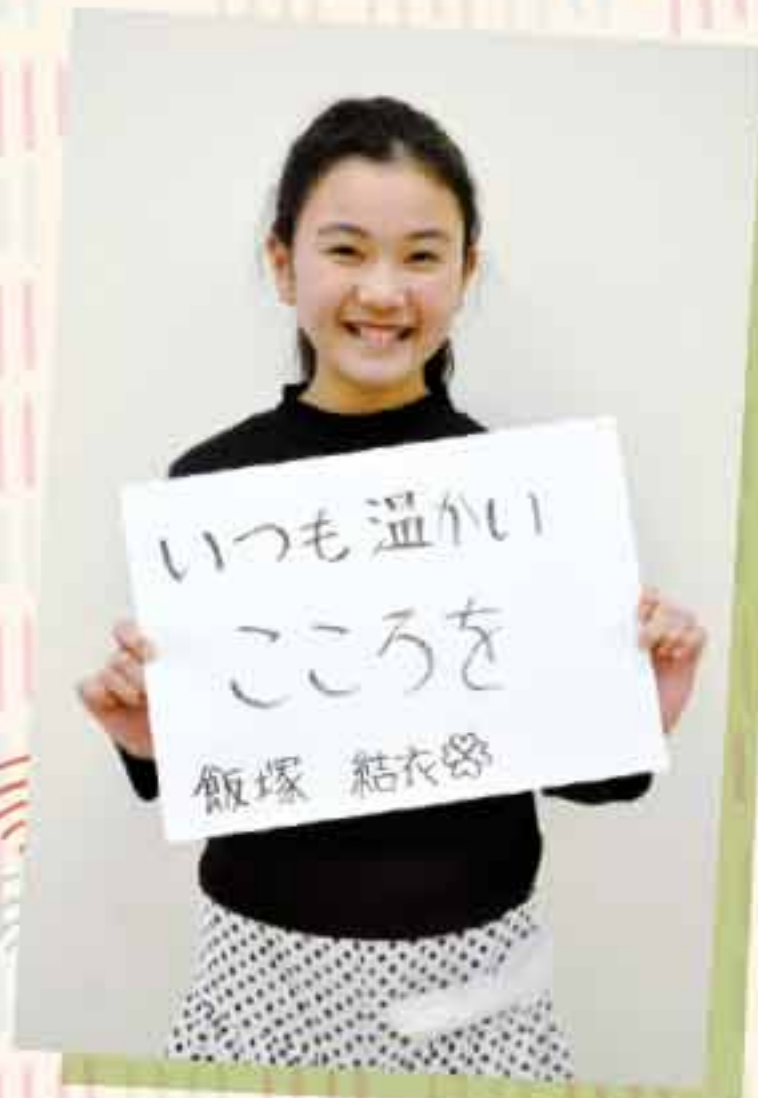 いつも温かい
こころを
飯塚 結衣